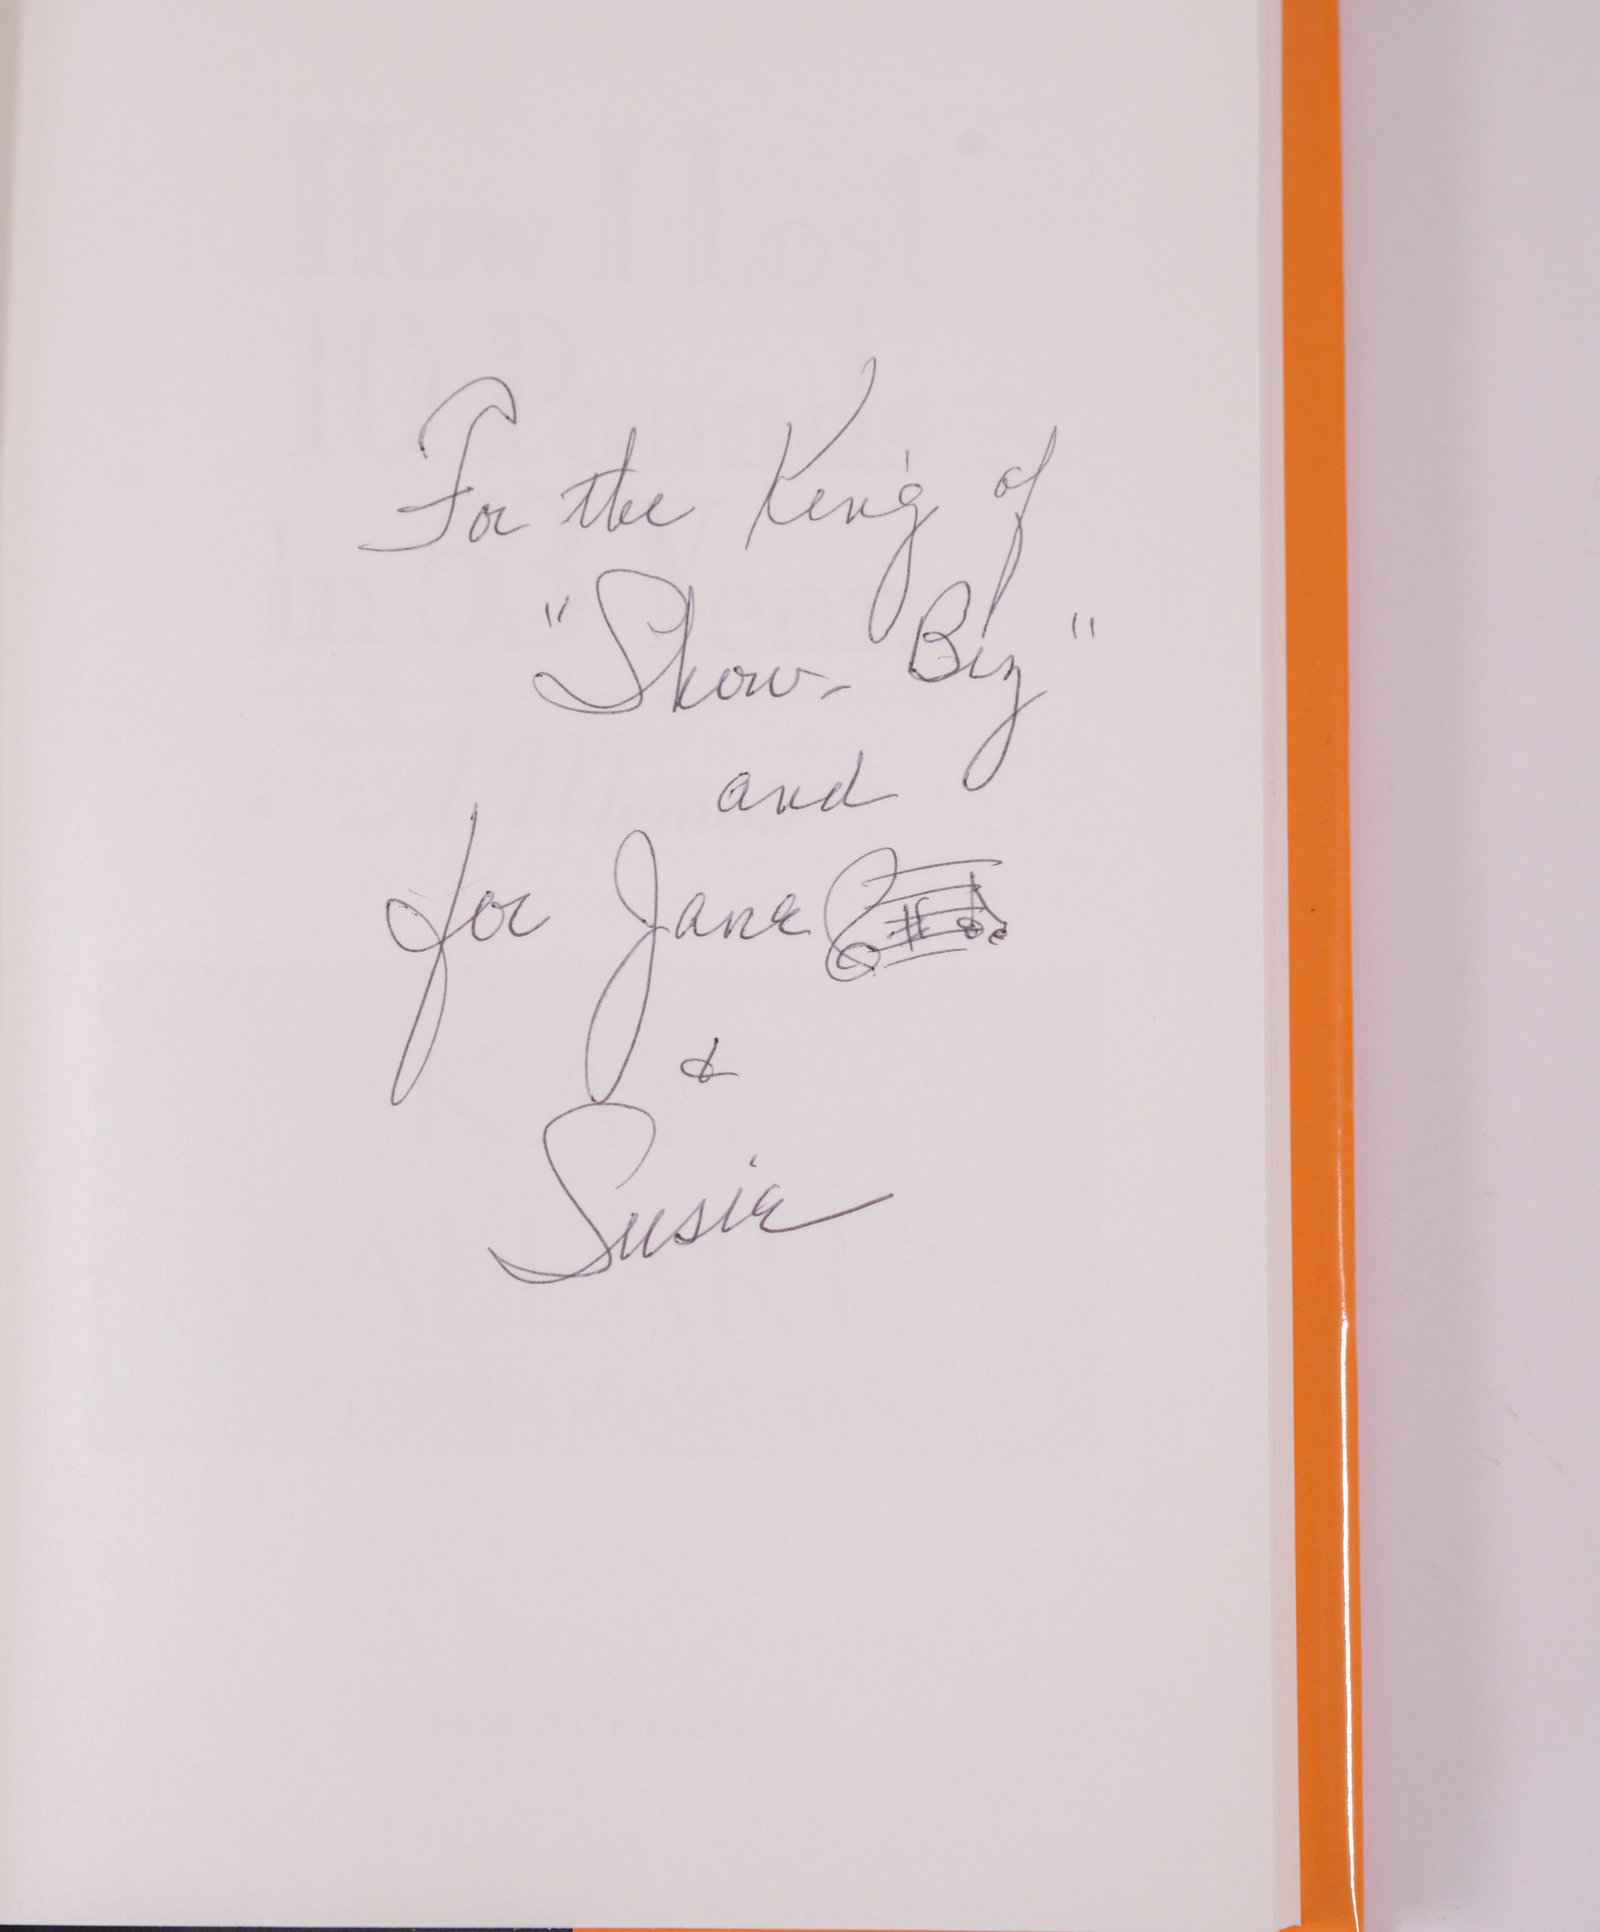 For the King of
"Show-Biz"
and
for Jane
&
Susie
How I Lost
10 Pounds
in 53 Years
A Memoir